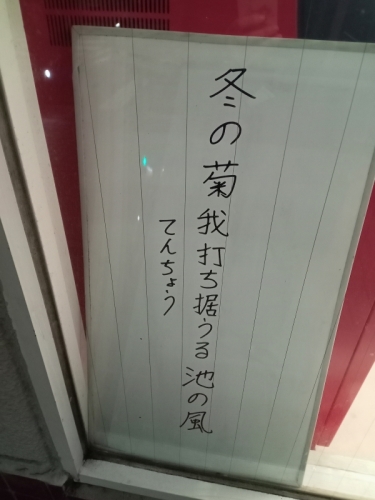 冬の菊我打ち据うる池の風
てんちょう